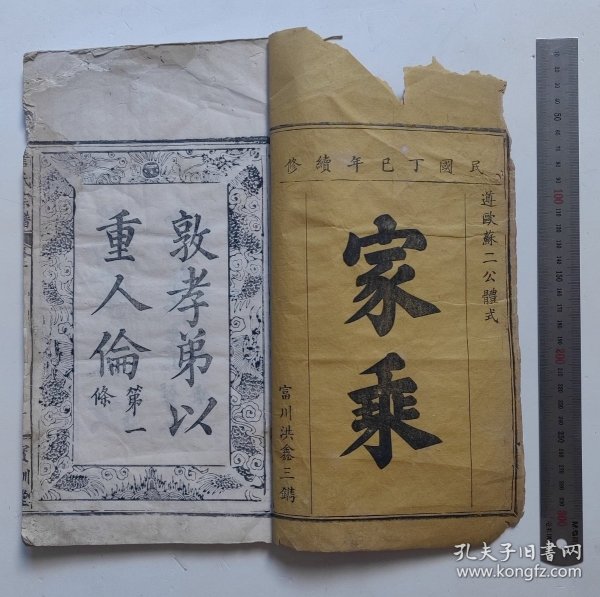 民國丁巳年續修
遵歐蘇二公體式
家乘
富川洪鑫三鐫
敦孝弟以
重人倫
第一
條
孔夫子旧书网
www.kongfz.com